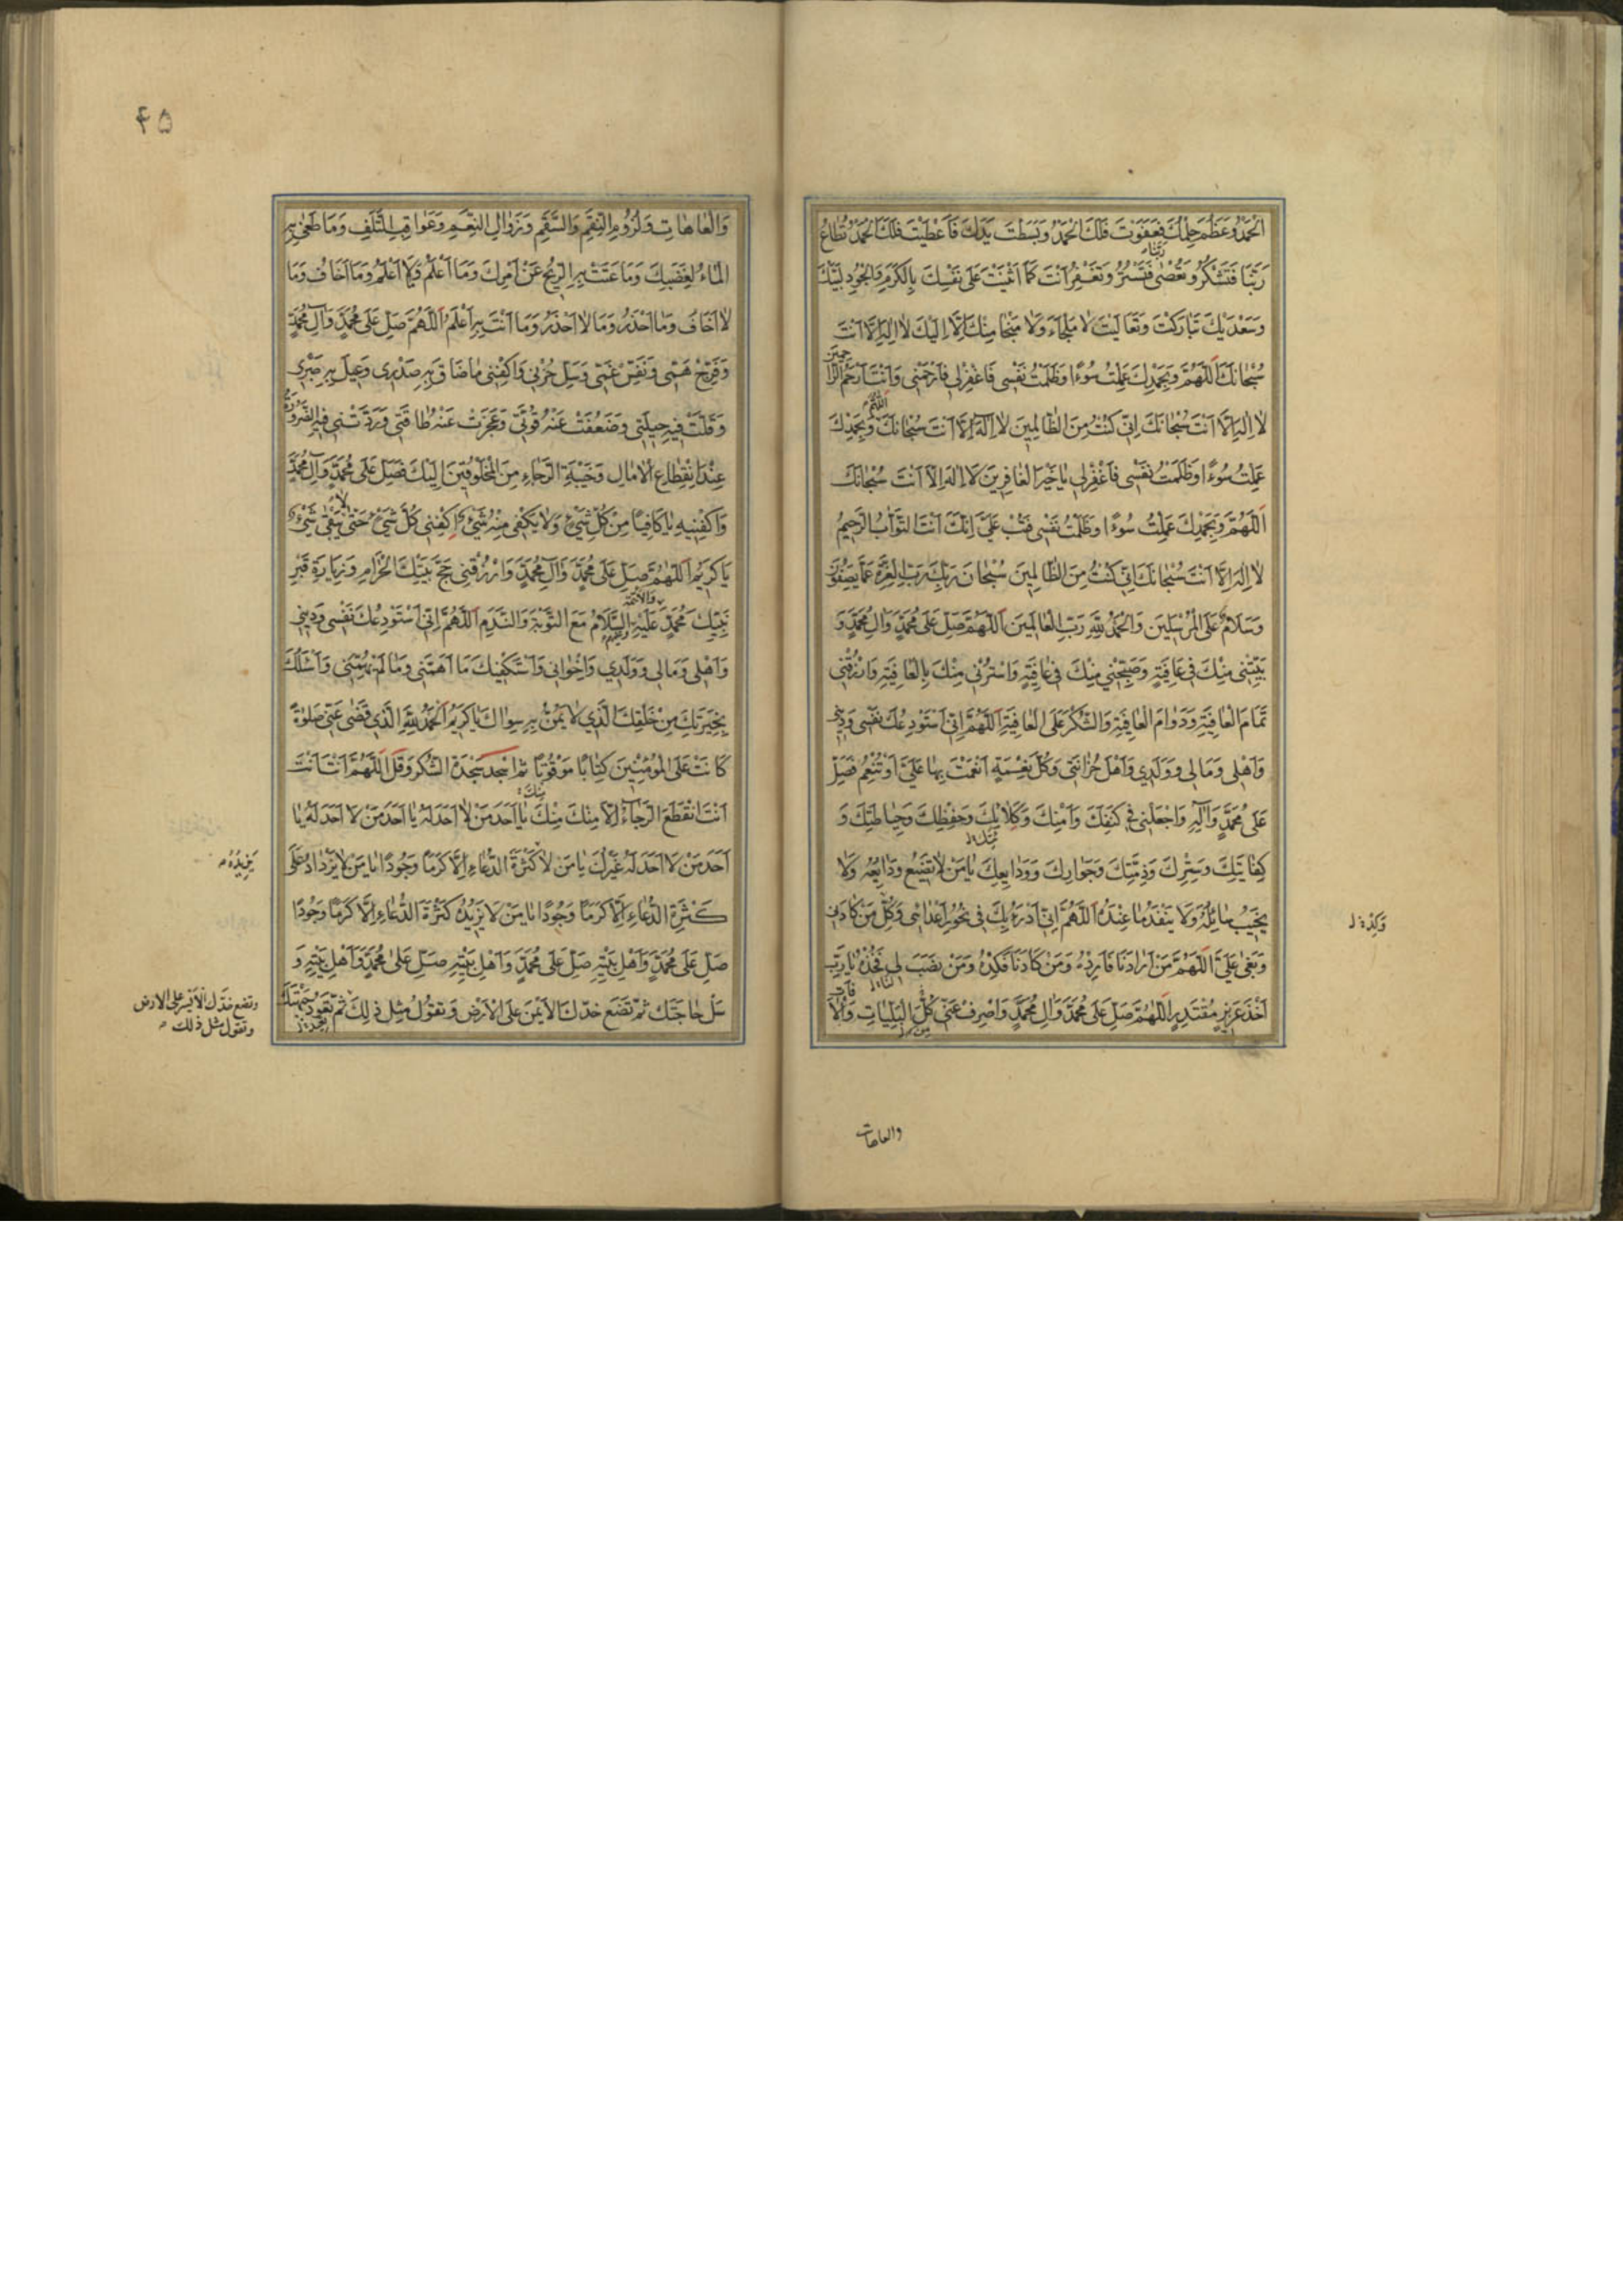 الْحَمْدُ وَعَظُمَ حِلْمُكَ فَعَفَوْتَ فَلَكَ الْحَمْدُ وَبَسَطْتَ يَدَكَ فَاَعْطَيْتَ فَلَكَ الْحَمْدُ تُطَاعُ
رَبَّنَا فَتَشْكُرُ وَتُعْصٰى رَبَّنَا فَتَسْتُرُ وَتَغْفِرُ اَنْتَ كَمَا اَثْنَيْتَ عَلَى نَفْسِكَ بِالْكَرَمِ وَالْجُودِ لَبَّيْكَ
وَسَعْدَيْكَ تَبَارَكْتَ وَتَعَالَيْتَ لَا مَلْجَاَءَ وَلَا مَنْجَا مِنْكَ اِلَّا اِلَيْكَ لَا اِلٰهَ اِلَّا اَنْتَ
سُبْحَانَكَ اَللّٰهُمَّ وَبِحَمْدِكَ عَمِلْتُ سُوءًا وَظَلَمْتُ نَفْسِى فَاغْفِرْلِى فَارْحَمْنِى وَاَنْتَ اَرْحَمُ الرَّاحِمِينَ
لَا اِلٰهَ اِلَّا اَنْتَ سُبْحَانَكَ اِنِّى كُنْتُ مِنَ الظَّالِمِينَ لَا اِلٰهَ اِلَّا اَنْتَ سُبْحَانَكَ اللّٰهُمَّ وَبِحَمْدِكَ
عَمِلْتُ سُوءًا وَظَلَمْتُ نَفْسِى فَاغْفِرْلِى يَا خَيْرَ الْغَافِرِينَ لَا اِلٰهَ اِلَّا اَنْتَ سُبْحَانَكَ
اَللّٰهُمَّ وَبِحَمْدِكَ عَمِلْتُ سُوءًا وَظَلَمْتُ نَفْسِى فَتُبْ عَلَىَّ اِنَّكَ اَنْتَ التَّوَّابُ الرَّحِيمُ
لَا اِلٰهَ اِلَّا اَنْتَ سُبْحَانَكَ اِنِّى كُنْتُ مِنَ الظَّالِمِينَ سُبْحَانَ رَبِّكَ رَبِّ الْعِزَّةِ عَمَّا يَصِفُونَ
وَسَلَامٌ عَلَى الْمُرْسَلِينَ وَالْحَمْدُ لِلّٰهِ رَبِّ الْعَالَمِينَ اَللّٰهُمَّ صَلِّ عَلَى مُحَمَّدٍ وَاٰلِ مُحَمَّدٍ وَ
بَيِّتْنِى مِنْكَ فِى عَافِيَةٍ وَصَبِّحْنِى مِنْكَ فِى عَافِيَةٍ وَاسْتُرْنِى مِنْكَ بِالْعَافِيَةِ وَارْزُقْنِى
تَمَامَ الْعَافِيَةِ وَدَوَامَ الْعَافِيَةِ وَالشُّكْرَ عَلَى الْعَافِيَةِ اَللّٰهُمَّ اِنِّى اَسْتَوْدِعُكَ نَفْسِى وَدِينِى
وَاَهْلِى وَمَالِى وَوَلَدِى وَاَهْلَ حُزَانَتِى وَكُلَّ نِعْمَةٍ اَنْعَمْتَ بِهَا عَلَىَّ اَوْ تُنْعِمُ فَصَلِّ
عَلَى مُحَمَّدٍ وَاٰلِهِ وَاجْعَلْنِى فِى كَنَفِكَ وَاَمْنِكَ وَكِلَائَتِكَ وَحِفْظِكَ وَحِيَاطَتِكَ وَ
كِفَايَتِكَ وَسِتْرِكَ وَذِمَّتِكَ وَجِوَارِكَ وَوَدَايِعِكَ يَا مَنْ لَا تَضِيعُ وَدَايِعُهُ وَلَا
يَخِيبُ سَائِلُهُ وَلَا يَنْفَدُ مَا عِنْدَهُ اَللّٰهُمَّ اِنِّى اَدْرَءُ بِكَ فِى نُحُورِ اَعْدَائِى وَكُلِّ مَنْ كَادَنِى
وَبَغٰى عَلَىَّ اَللّٰهُمَّ مَنْ اَرَادَنَا فَاَرِدْهُ وَمَنْ كَادَنَا فَكِدْهُ وَمَنْ نَصَبَ لِى فَخُذْهُ يَا رَبِّ
اَخْذَ عَزِيزٍ مُقْتَدِرٍ اَللّٰهُمَّ صَلِّ عَلَى مُحَمَّدٍ وَاٰلِ مُحَمَّدٍ وَاصْرِفْ عَنِّى كُلَّ الْبَلِيَّاتِ وَالْاٰفَاتِ
وَكِدْهُ
والعاهات
۴۵
وَالْعَاهَاتِ وَلُزُومِ النِّقَمِ وَالسَّقَمِ وَزَوَالِ النِّعَمِ وَعَوَاقِبِ التَّلَفِ وَمَا طَغٰى بِهِ
الْمَاءُ لِغَضَبِكَ وَمَا عَتَتْ بِهِ الرِّيحُ عَنْ اَمْرِكَ وَمَا اَعْلَمُ وَمَا لَا اَعْلَمُ وَمَا اَخَافُ وَمَا
لَا اَخَافُ وَمَا اَحْذَرُ وَمَا لَا اَحْذَرُ وَمَا اَنْتَ بِهِ اَعْلَمُ اَللّٰهُمَّ صَلِّ عَلَى مُحَمَّدٍ وَاٰلِ مُحَمَّدٍ
وَفَرِّجْ هَمِّى وَنَفِّسْ غَمِّى وَسَلِّ حُزْنِى وَاكْفِنِى مَا ضَاقَ بِهِ صَدْرِى وَعِيلَ بِهِ صَبْرِى
وَقَلَّتْ فِيهِ حِيلَتِى وَضَعُفَتْ عَنْهُ قُوَّتِى وَعَجَزَتْ عَنْهُ طَاقَتِى وَرَدَّتْنِى فِيهِ الضَّرُورَةُ
عِنْدَ انْقِطَاعِ الْاٰمَالِ وَخَيْبَةِ الرَّجَاءِ مِنَ الْمَخْلُوقِينَ اِلَيْكَ فَصَلِّ عَلَى مُحَمَّدٍ وَاٰلِ مُحَمَّدٍ
وَاكْفِنِيهِ يَا كَافِيًا مِنْ كُلِّ شَىْءٍ وَلَا يَكْفِى مِنْهُ شَىْءٌ اِكْفِنِى كُلَّ شَىْءٍ حَتّٰى لَا يَبْقٰى شَىْءٌ
يَا كَرِيمُ اَللّٰهُمَّ صَلِّ عَلَى مُحَمَّدٍ وَاٰلِ مُحَمَّدٍ وَارْزُقْنِى حَجَّ بَيْتِكَ الْحَرَامِ وَزِيَارَةَ قَبْرِ
نَبِيِّكَ مُحَمَّدٍ عَلَيْهِ وَالْاَئِمَّةِ السَّلَامُ مَعَ التَّوْبَةِ وَالنَّدَمِ اَللّٰهُمَّ اِنِّى اَسْتَوْدِعُكَ نَفْسِى وَدِينِى
وَاَهْلِى وَمَالِى وَوَلَدِى وَاِخْوَانِى وَاَسْتَكْفِيكَ مَا اَهَمَّنِى وَمَا لَمْ يُهِمَّنِى وَاَسْئَلُكَ
بِخِيَرَتِكَ مِنْ خَلْقِكَ الَّذِى لَا يَمُنُّ بِهِ سِوَاكَ يَا كَرِيمُ اَلْحَمْدُ لِلّٰهِ الَّذِى قَضٰى عَنِّى صَلٰوةً
كَانَتْ عَلَى الْمُؤْمِنِينَ كِتَابًا مَوْقُوتًا ثم اسْجد سَجْدَة الشّكر وَقل اَللّٰهُمَّ اَنْتَ اَنْتَ
اَنْتَ انْقَطَعَ الرَّجَاءُ اِلَّا مِنْكَ مِنْكَ مِنْكَ يَا اَحَدَ مَنْ لَا اَحَدَ لَهُ يَا اَحَدَ مَنْ لَا اَحَدَ لَهُ يَا
اَحَدَ مَنْ لَا اَحَدَ لَهُ غَيْرُكَ يَا مَنْ لَا كَثْرَةُ الدُّعَاءِ اِلَّا كَرَمًا وَجُودًا يَا مَنْ لَا يَزْدَادُ عَلَى
كَثْرَةِ الدُّعَاءِ اِلَّا كَرَمًا وَجُودًا يَا مَنْ لَا يَزِيدُهُ كَثْرَةُ الدُّعَاءِ اِلَّا كَرَمًا وَجُودًا
صَلِّ عَلَى مُحَمَّدٍ وَاَهْلِ بَيْتِهِ صَلِّ عَلَى مُحَمَّدٍ وَاَهْلِ بَيْتِهِ صَلِّ عَلَى مُحَمَّدٍ وَاَهْلِ بَيْتِهِ وَ
سَلْ حَاجَتَكَ ثُمَّ تَضَعُ خَدَّكَ الْاَيْمَنَ عَلَى الْاَرْضِ وَتَقُولُ مِثْلَ ذٰلِكَ ثُمَّ تَعُودُ جَبْهَتَكَ
يَزِيدُهُ
وتضع خدّك الأيسر على الارض
وتقول مثل ذلك